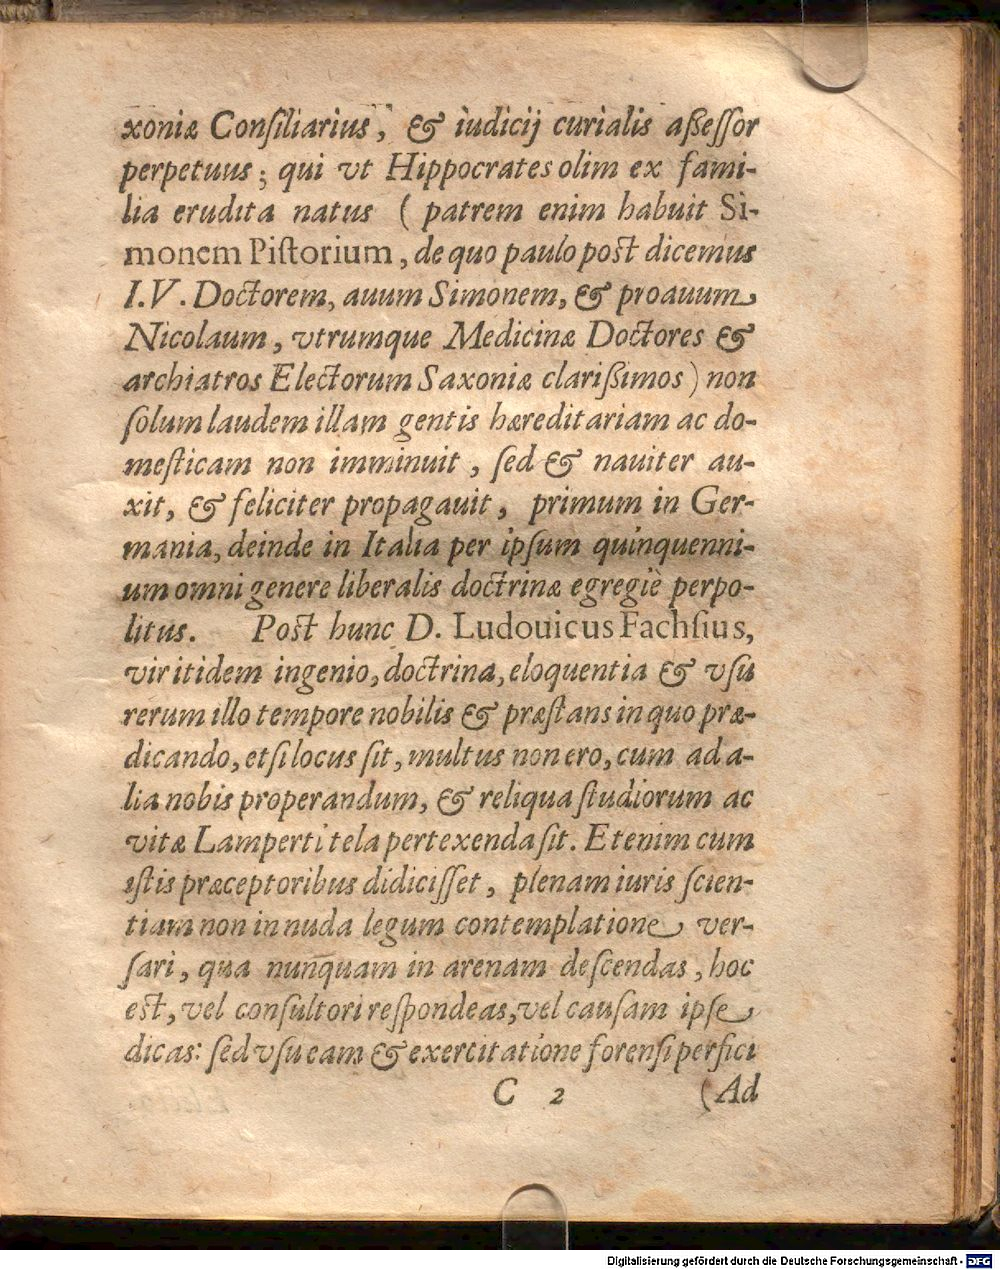 xoniæ Consiliarius, & iudicij curialis aßeſſor
perpetuus; qui vt Hippocrates olim ex fami-
lia erudita natus ( patrem enim habuit Si-
monem Piſtorium, de quo paulo poſt dicemus
I.V. Doctorem, auum Simonem, & proauum
Nicolaum, vtrumque Medicinæ Doctores &
archiatros Electorum Saxoniæ clarißimos) non
ſolum laudem illam gentis hæreditariam ac do-
meſticam non imminuit, ſed & nauiter au-
xit, & feliciter propagauit, primum in Ger-
mania, deinde in Italia per ipſum quinquenni-
um omni genere liberalis doctrinæ egregiè perpo-
litus. Poſt hunc D. Ludouicus Fachſius,
vir itidem ingenio, doctrina, eloquentia & vſu
rerum illo tempore nobilis & præſtans in quo præ-
dicando, etſi locus ſit, multus non ero, cum ad a-
lia nobis properandum, & reliqua ſtudiorum ac
vitæ Lamperti tela pertexenda ſit. Etenim cum
iſtis præceptoribus didiciſſet, plenam iuris ſcien-
tiam non in nuda legum contemplatione ver-
ſari, qua nunquam in arenam deſcendas, hoc
eſt, vel conſultori reſpondeas, vel cauſam ipſe
dicas: ſed vſu eam & exercitatione forenſi perfici
C 2 (Ad
Digitalisierung gefördert durch die Deutsche Forschungsgemeinschaft - DFG